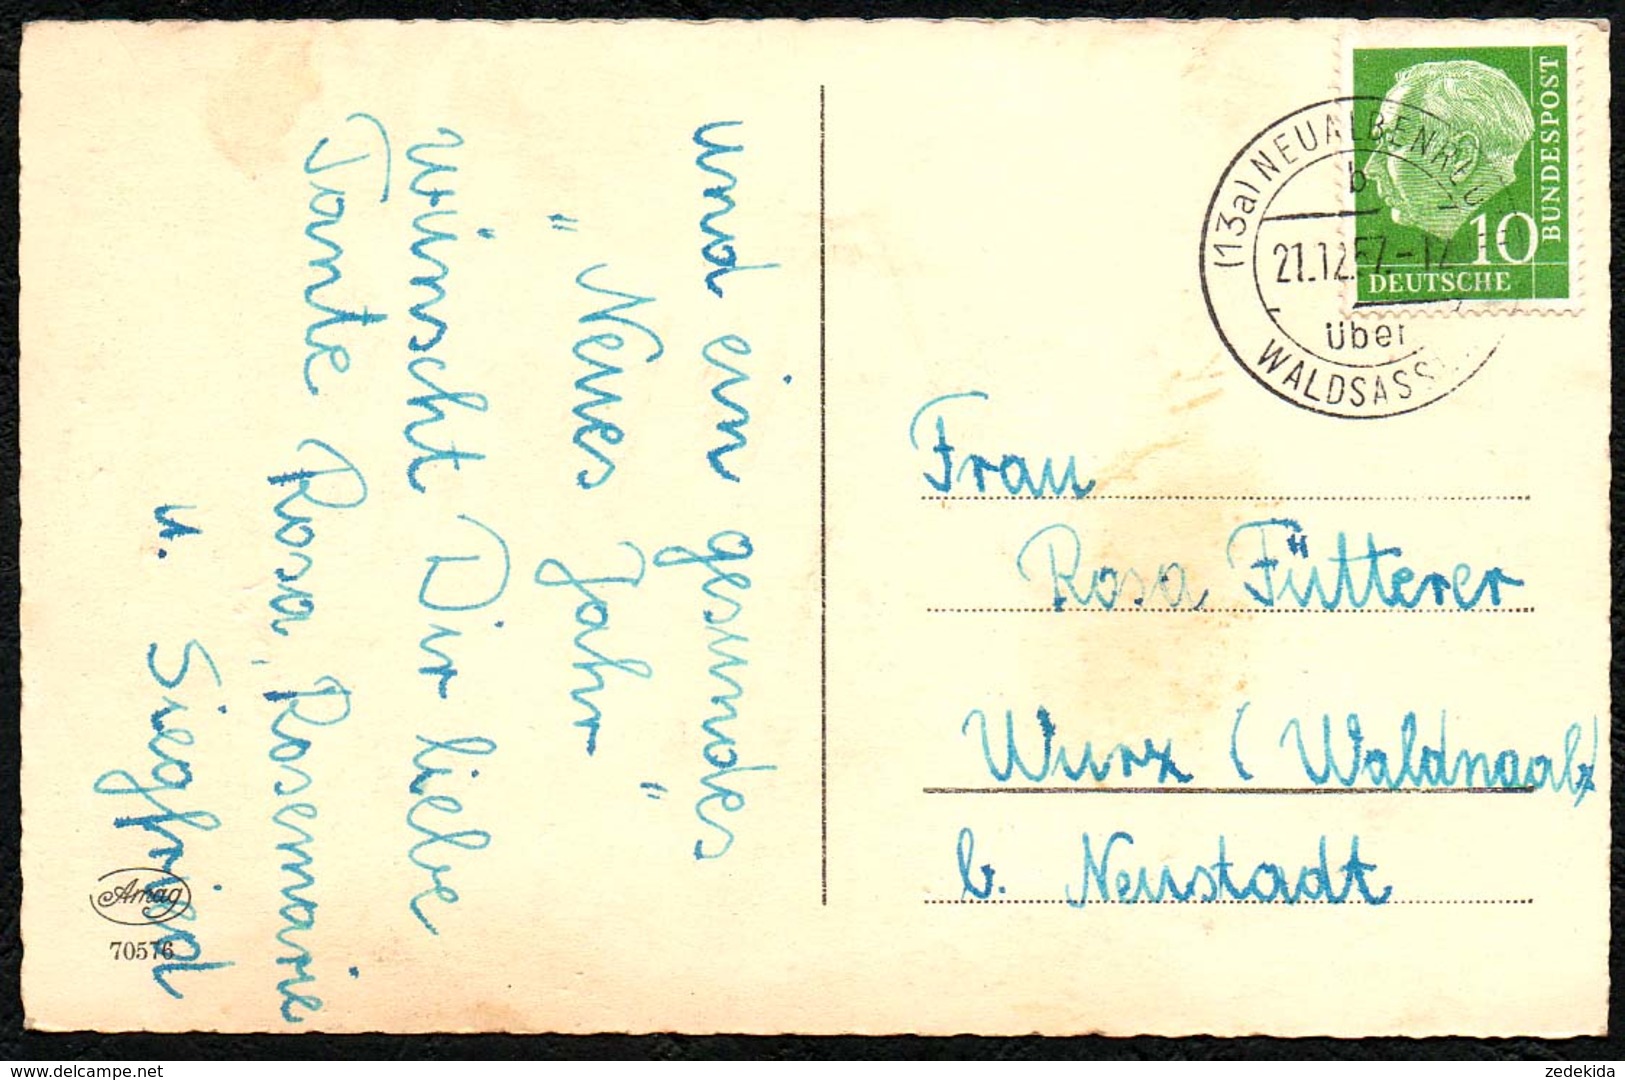 und ein gesundes
" Neues Jahr "
wünscht Dir liebe
Tante Rosa, Rosemarie
u. Siegfried
Amag
70576
BUNDESPOST
10
DEUTSCHE
(13a) NEUALBENR
b
21.12.57.-12
über
WALDSASS
Frau
Rosa Fütterer
Wurz (Waldnaab)
b. Neustadt
delcampe.net
zedekida